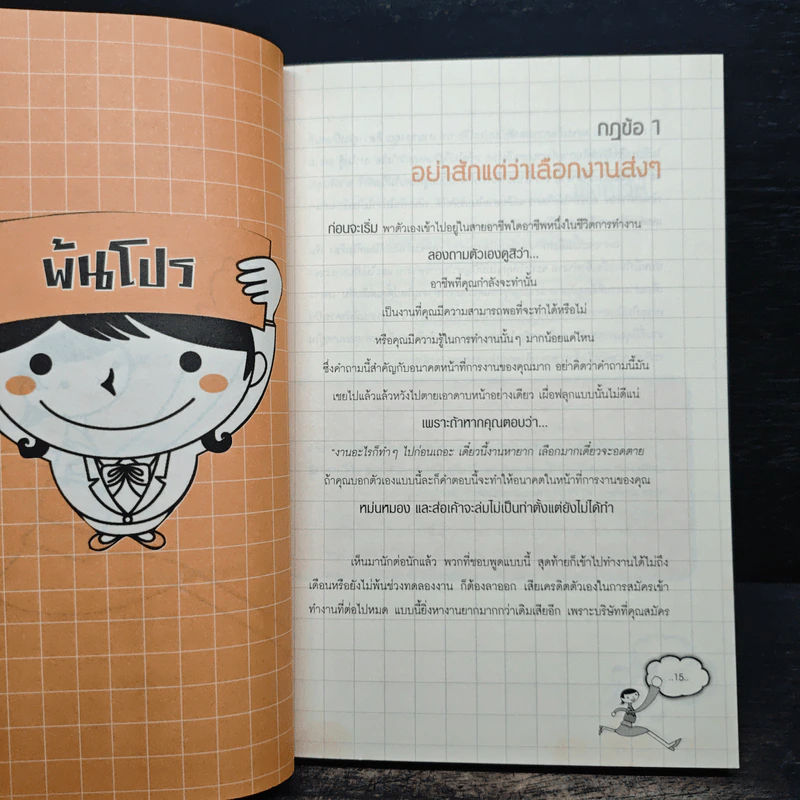 พ้นโปร
กฎข้อ 1
อย่าสักแต่ว่าเลือกงานส่งๆ
ก่อนจะเริ่ม พาตัวเองเข้าไปอยู่ในสายอาชีพใดอาชีพหนึ่งในชีวิตการทำงาน
ลองถามตัวเองดูสิว่า...
อาชีพที่คุณกำลังจะทำนั้น
เป็นงานที่คุณมีความสามารถพอที่จะทำได้หรือไม่
หรือคุณมีความรู้ในการทำงานนั้นๆ มากน้อยแค่ไหน
ซึ่งคำถามนี้สำคัญกับอนาคตหน้าที่การงานของคุณมาก อย่าคิดว่าคำถามนี้มัน
เชยไปแล้วแล้วหวังไปตายเอาดาบหน้าอย่างเดียว เผื่อฟลุกแบบนั้นไม่ดีแน่
เพราะถ้าหากคุณตอบว่า...
"งานอะไรก็ทำๆ ไปก่อนเถอะ เดี๋ยวนี้งานหายาก เลือกมากเดี๋ยวจะอดตาย
ถ้าคุณบอกตัวเองแบบนี้ละก็คำตอบนี้จะทำให้อนาคตในหน้าที่การงานของคุณ
หม่นหมอง และส่อเค้าจะล่มไม่เป็นท่าตั้งแต่ยังไม่ได้ทำ
เห็นมานักต่อนักแล้ว พวกที่ชอบพูดแบบนี้ สุดท้ายก็เข้าไปทำงานได้ไม่ถึง
เดือนหรือยังไม่พ้นช่วงทดลองงาน ก็ต้องลาออก เสียเครดิตตัวเองในการสมัครเข้า
ทำงานที่ต่อไปหมด แบบนี้ยิ่งหางานยากมากกว่าเดิมเสียอีก เพราะบริษัทที่คุณสมัคร
..15..